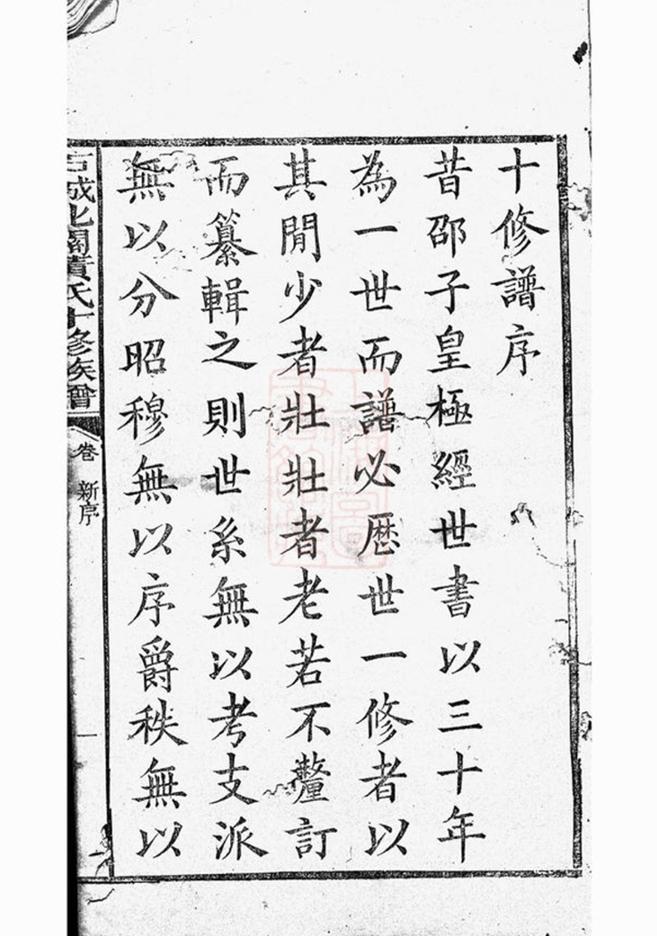 十修譜序
昔邵子皇極經世書以三十年
為一世而譜必歷世一修者以
其閒少者壯壯者老若不釐訂
而纂輯之則世系無以考支派
無以分昭穆無以序爵秩無以
北關黄氏十修族譜
卷 新序